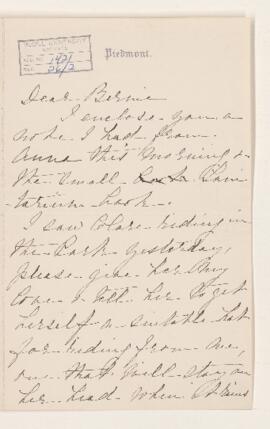 McGILL UNIVERSITY
ARCHIVES
ACC. NO. 1421
REF. 26/2
Piedmont.
Dear Bernie
I enclose you a
note I had from
Anna this morning &
the small
book
I saw Clare riding in
the Park yesterday,
please give her my
love & tell her to get
herself a suitable hat
for riding from me,
one that will stay on
her head when it